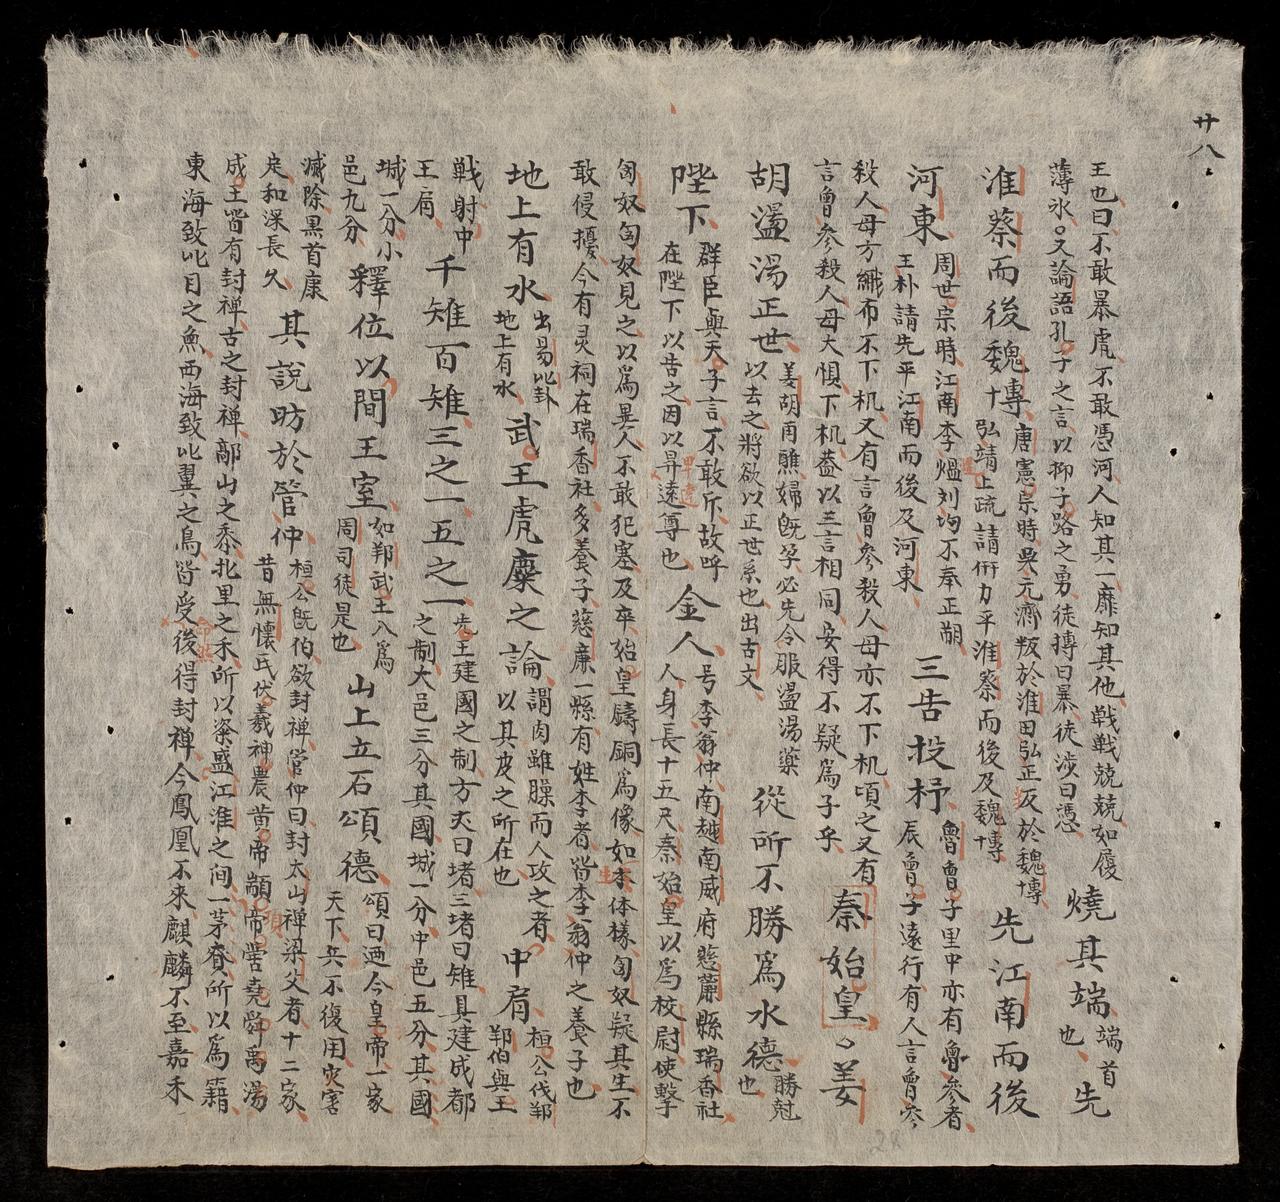 廿八
王也曰不敢暴虎不敢憑河人知其一靡知其他戦戦兢兢如履
薄氷又論語孔子之言以抑子路之勇徒摶曰暴徒涉曰憑
燒其端
端首
也
先
淮蔡而後魏博
唐憲宗時吳元濟叛於淮田弘正反於魏博
弘靖上疏請併力平淮蔡而後及魏博
先江南而後
河東
周世宗時江南李熅刘均不奉正朔
王朴請先平江南而後及河東
三告投杼
魯曾子里中亦有曾參者
辰曾子遠行有人言曾參
殺人母方織布不下机又有言曾參殺人母亦不下机頃之又有
言曾參殺人母大惧下机蓋以三言相同安得不疑爲子乎
秦始皇
姜
胡盪湯正世
姜胡甫醮婦既孕必先令服盪湯藥
以去之將欲以正世系也出古文
從所不勝爲水德
勝尅
也
陛下
群臣與天子言不敢斥故呼
在陛下以告之因以昇遠尊也
卑達
金人
号李翁仲南越南威府慈蕭縣瑞香社
人身長十五尺秦始皇以爲校尉使擊
匈奴匈奴見之以爲異人不敢犯塞及卒始皇鑄銅爲像如李体樣匈奴疑其生不
生
敢侵擾今有灵祠在瑞香社多養子慈廉一縣有姓李者皆李翁仲之養子也
地上有水
出易比卦
地上有水
武王虎麋之論
謂肉雖臊而人攻之者
以其皮之所在也
中肩
桓公伐鄭
鄭伯與王
戦射中
王肩
千雉百雉三之一五之一
先王建國之制方丈曰堵三堵曰雉具建成都
之制大邑三分其國城一分中邑五分其國
城一分小
邑九分
釋位以間王室
如鄭武王入爲
周司徒是也
山上立石頌德
頌曰迺今皇帝一家
天下兵不復用灾害
滅除黒首康
定和深長久
其說昉於管仲
桓公既伯欲封禅管仲曰封太山禅梁父者十二家
昔無懷氏伏羲神農黄帝顓帝嚳堯舜禹湯
成王皆有封禅古之封禅鄗山之黍北里之禾所以粢盛江淮之间一茅脊所以爲籍
東海致比目之魚西海致比翼之鳥皆受後得封禅今鳳凰不來麒麟不至嘉禾
28